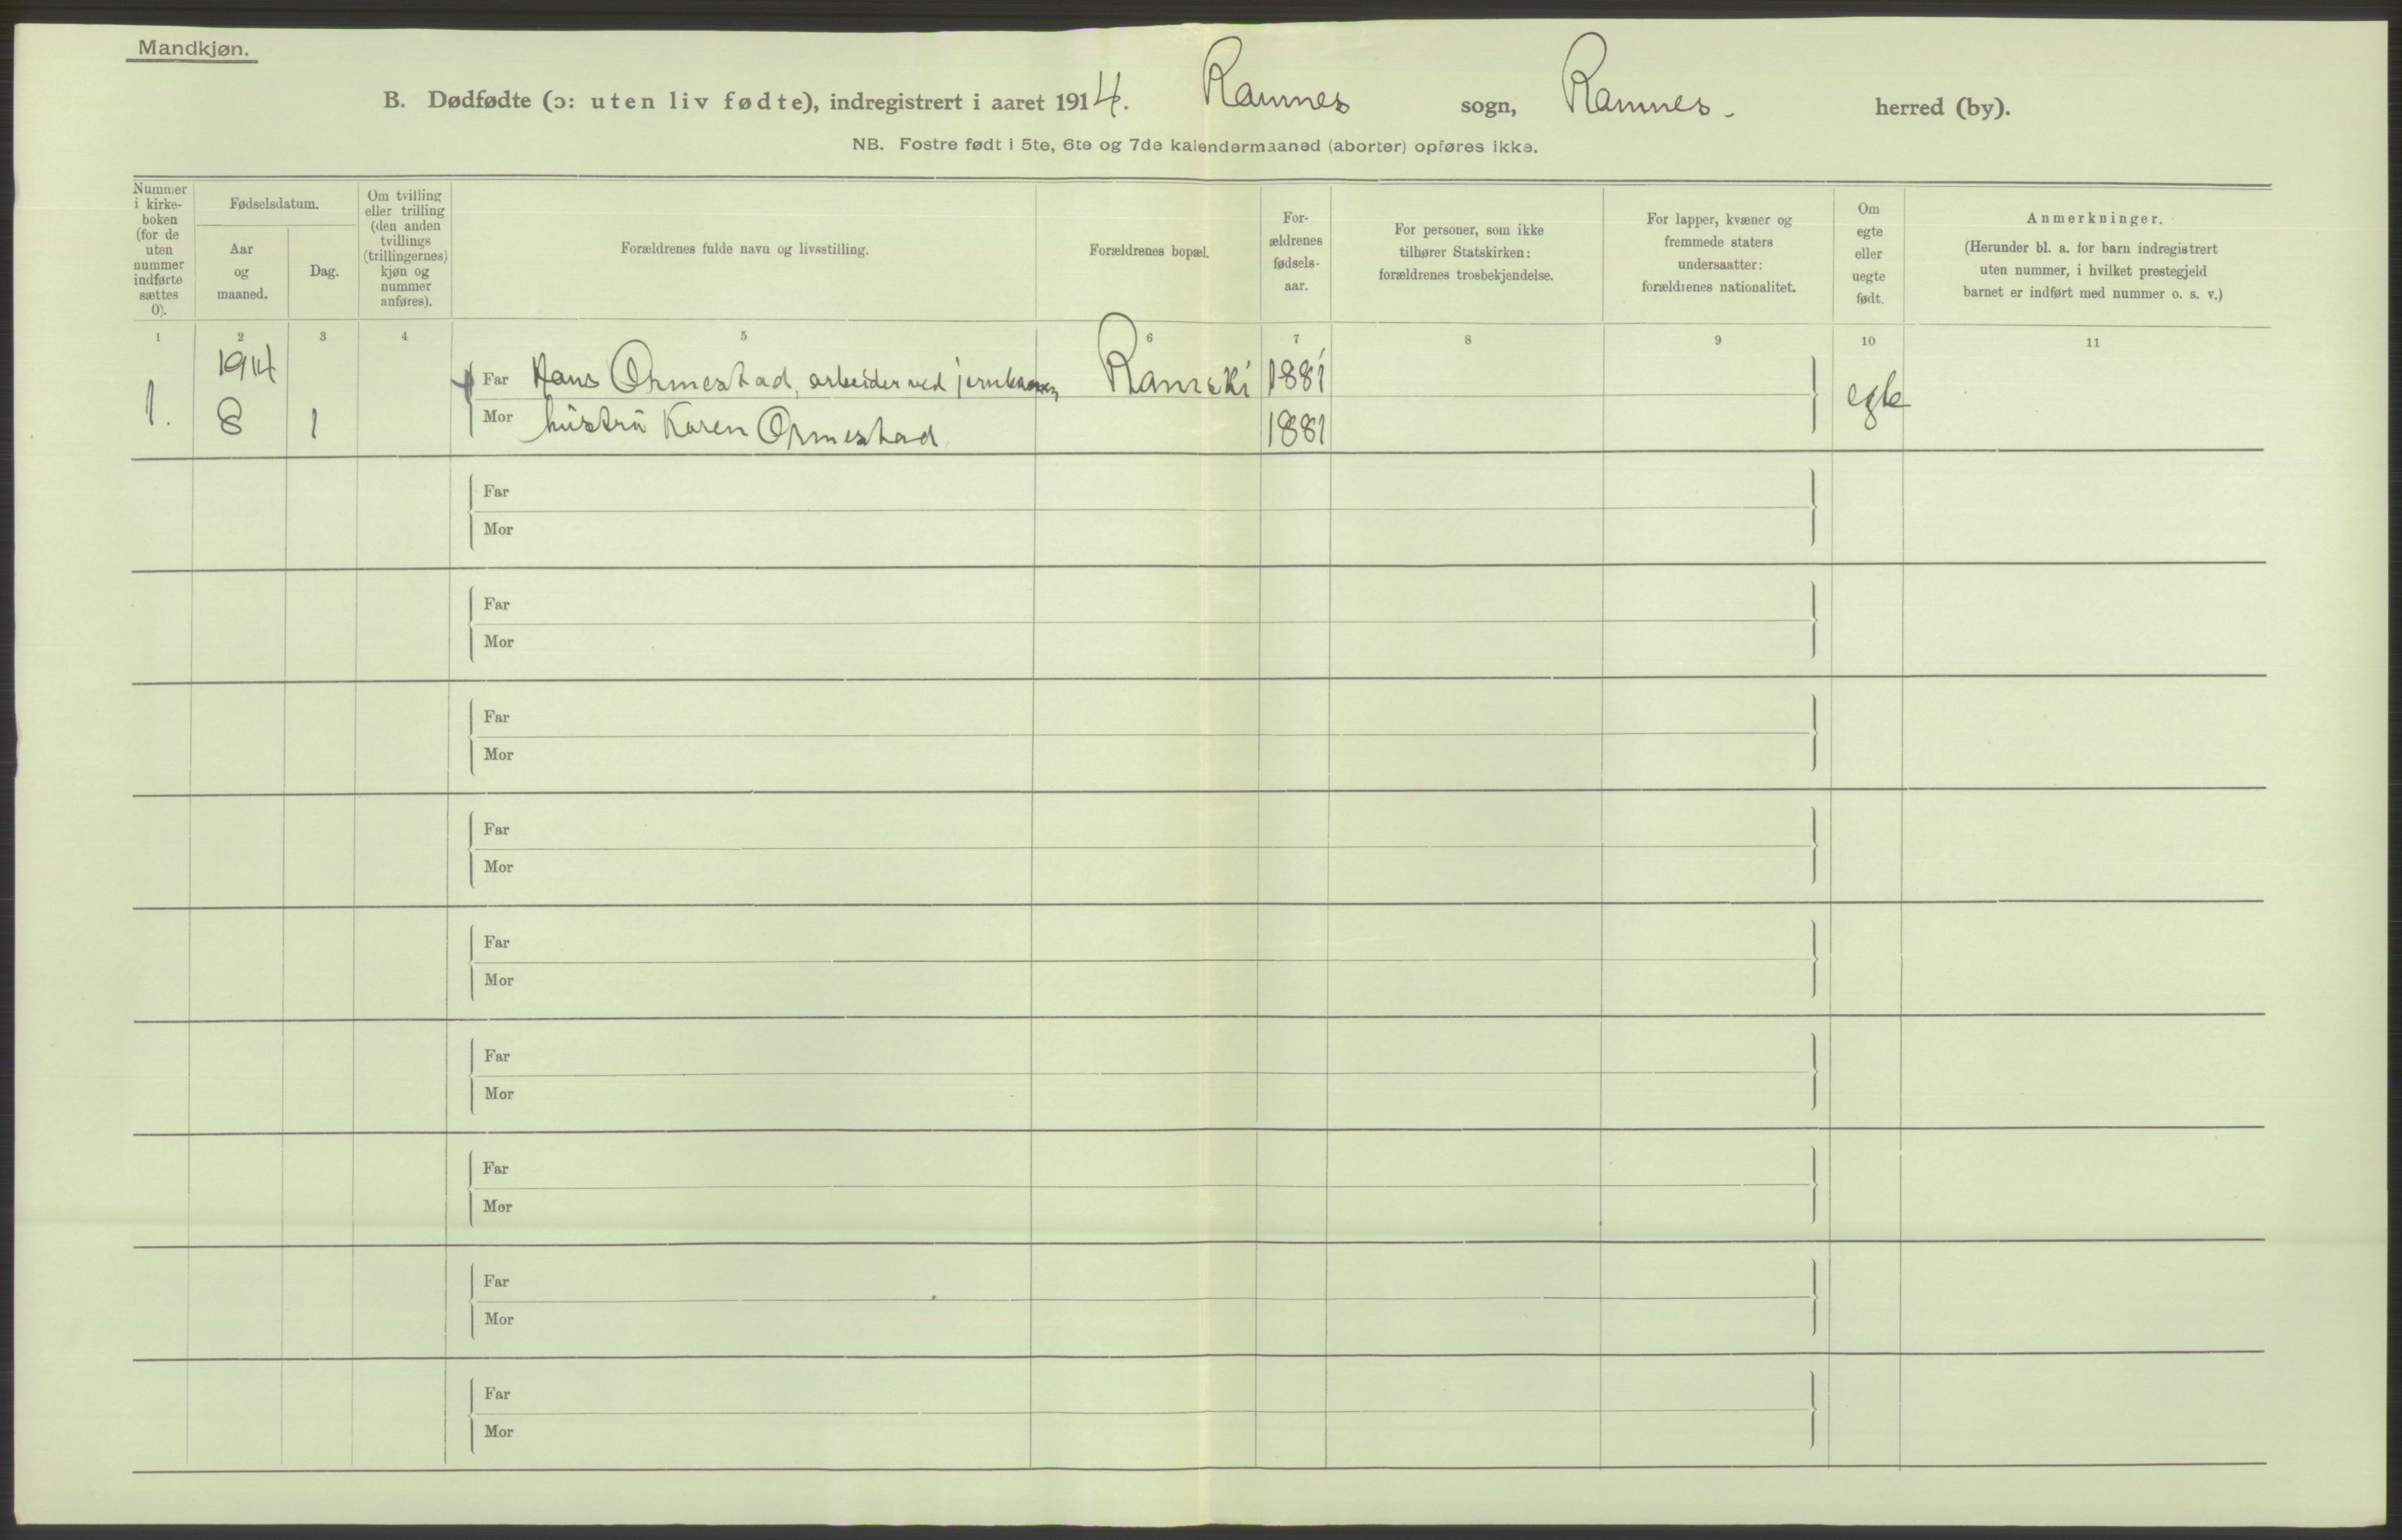 Mandkjøn.
B. Dødfødte (ɔ: uten liv fødte), indregistrert i aaret 1914. Ramnes sogn, Ramnes. herred (by).
NB. Fostre født i 5te, 6te og 7de kalendermaaned (aborter) opføres ikke.
Nummer i kirke-boken (for de uten nummer indførte sættes 0).
Fødselsdatum.
Aar og maaned.
Dag.
Om tvilling eller trilling (den anden tvillings (trillingernes) kjøn og nummer anføres).
Forældrenes fulde navn og livsstilling.
Forældrenes bopæl.
For-ældrenes fødsels-aar.
For personer, som ikke tilhører Statskirken: forældrenes trosbekjendelse.
For lapper, kvæner og fremmede staters undersaatter: forældrenes nationalitet.
Om egte eller uegte født.
Anmerkninger.
(Herunder bl. a. for barn indregistrert uten nummer, i hvilket prestegjeld barnet er indført med nummer o. s. v.)
1 2 3 4 5 6 7 8 9 10 11
1914
Far Hans Ormestad, arbeider ved 1881
1. 8 1 egte
Mor hustru Karen Ormestad 1881
Far
Mor
Far
Mor
Far
Mor
Far
Mor
Far
Mor
Far
Mor
Far
Mor
Far
Mor
Far
Mor